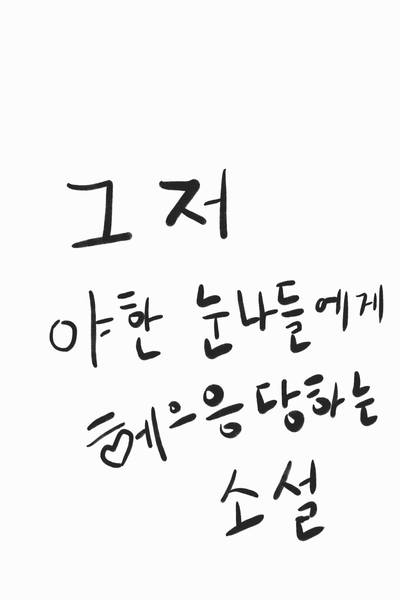 그저
야한 눈나들에게
혜으응당하는
소설